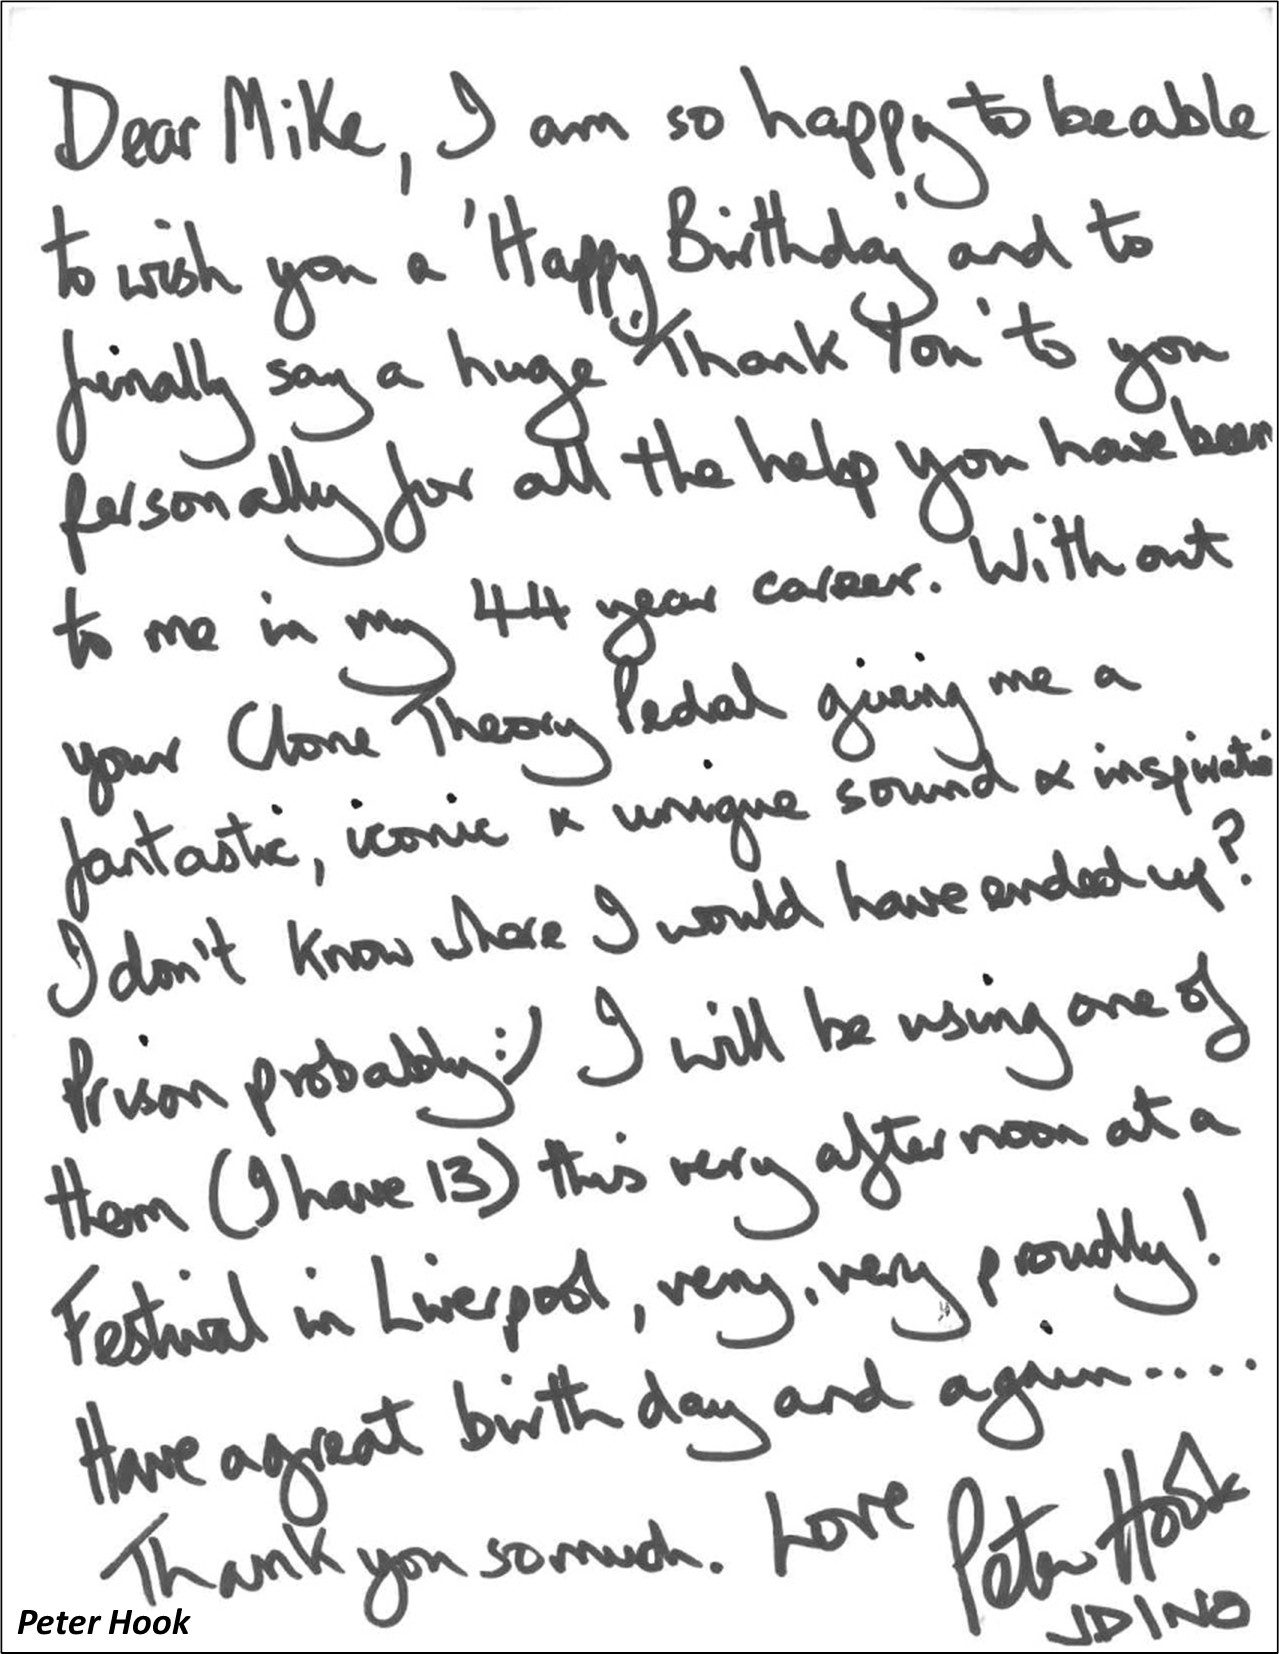 Dear Mike, I am so happy to be able
to wish you a 'Happy Birthday' and to
finally say a huge 'Thank You' to you
personally for all the help you have been
to me in my 44 year career. Without
your Clone Theory Pedal giving me a
fantastic, iconic & unique sound & inspiratio
I don't know where I would have ended up?
Prison probably :) I will be using one of
them (I have 13) this very afternoon at a
Festival in Liverpool, very, very proudly!
Have a great birthday and again.....
Thank you so much. Love Peter Hook
JD/NO
Peter Hook